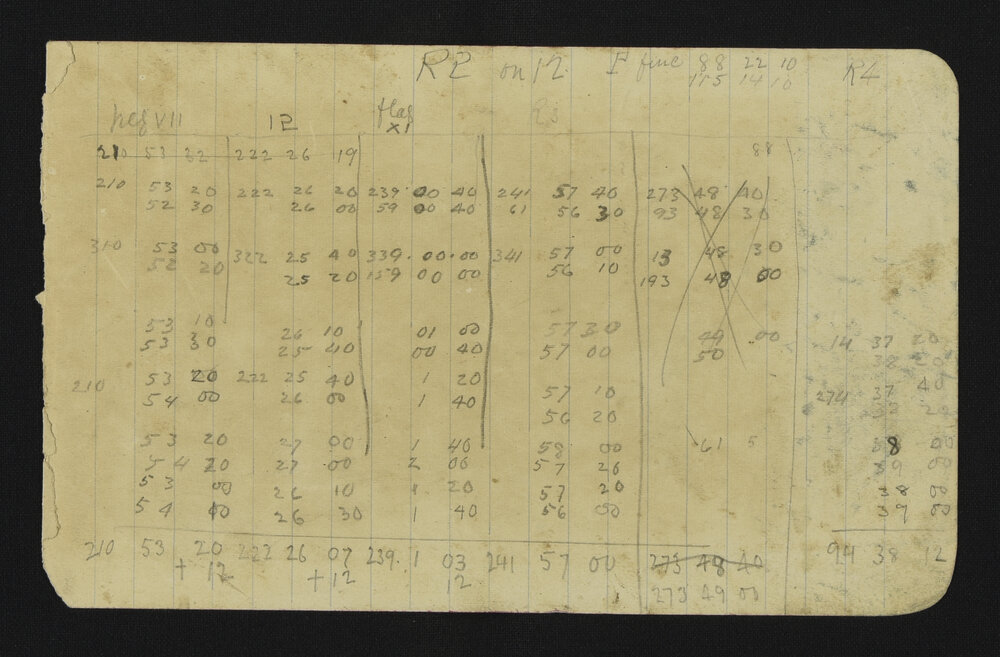 R2 on 12 88 22 10 R4
115 14 10
peg VII 12 flag R3
XI
210 53 22 222 26 19 88
210 53 20 222 26 20 239 00 40 241 57 40 273 48 40
52 30 26 00 59 00 40 61 56 30 93 48 30
310 53 00 322 25 40 339 00 00 341 57 00 13 48 30
52 20 25 20 159 00 00 56 10 193 48 00
53 10 26 10 01 00 57 30 49 00
53 30 25 40 00 40 57 00 50 14 37 20
38
210 53 20 222 25 40 1 20 57 10 274 37 40
54 00 26 00 1 40 56 20
53 20 27 00 1 40 58 00 61 5 38 00
54 20 27 00 2 00 57 20 39 00
53 00 26 10 1 20 57 20 38 00
54 10 26 30 1 40 56 50 39 00
210 53 20 222 26 07 239 1 03 241 57 00 273 48 40 94 38 12
+ 12 + 12 12
273 49 00